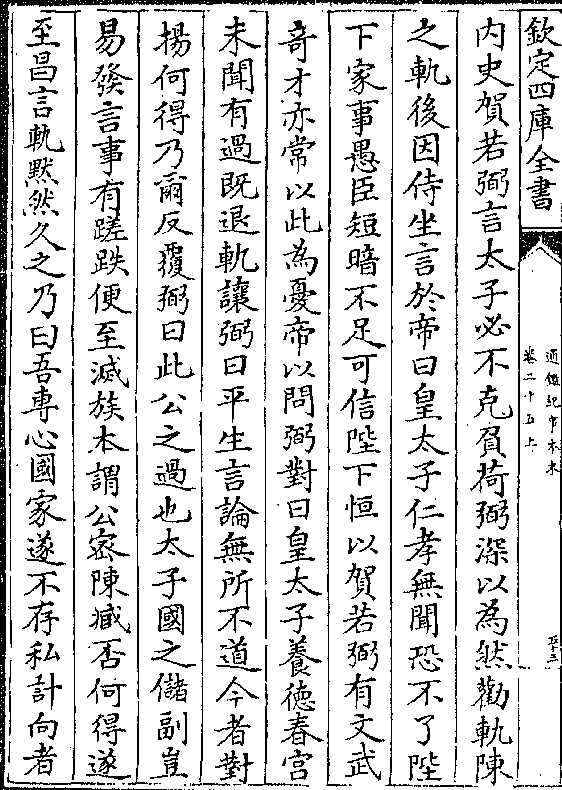 欽定四庫全書
通鑑紀事本末
卷二十五上
內史賀若弼言太子必不克負荷弼深以為然勸軌陳
之軌後因侍坐言於帝曰皇太子仁孝無聞恐不了陛
下家事愚臣短暗不足可信陛下恒以賀若弼有文武
竒才亦常以此為憂帝以問弼對曰皇太子養德春宮
未聞有過既退軌讓弼曰平生言論無所不道今者對
揚何得乃爾反覆弼曰此公之過也太子國之儲副豈
易發言事有蹉跌便至滅族本謂公密陳臧否何得遂
至昌言軌黙然久之乃曰吾專心國家遂不存私計向者